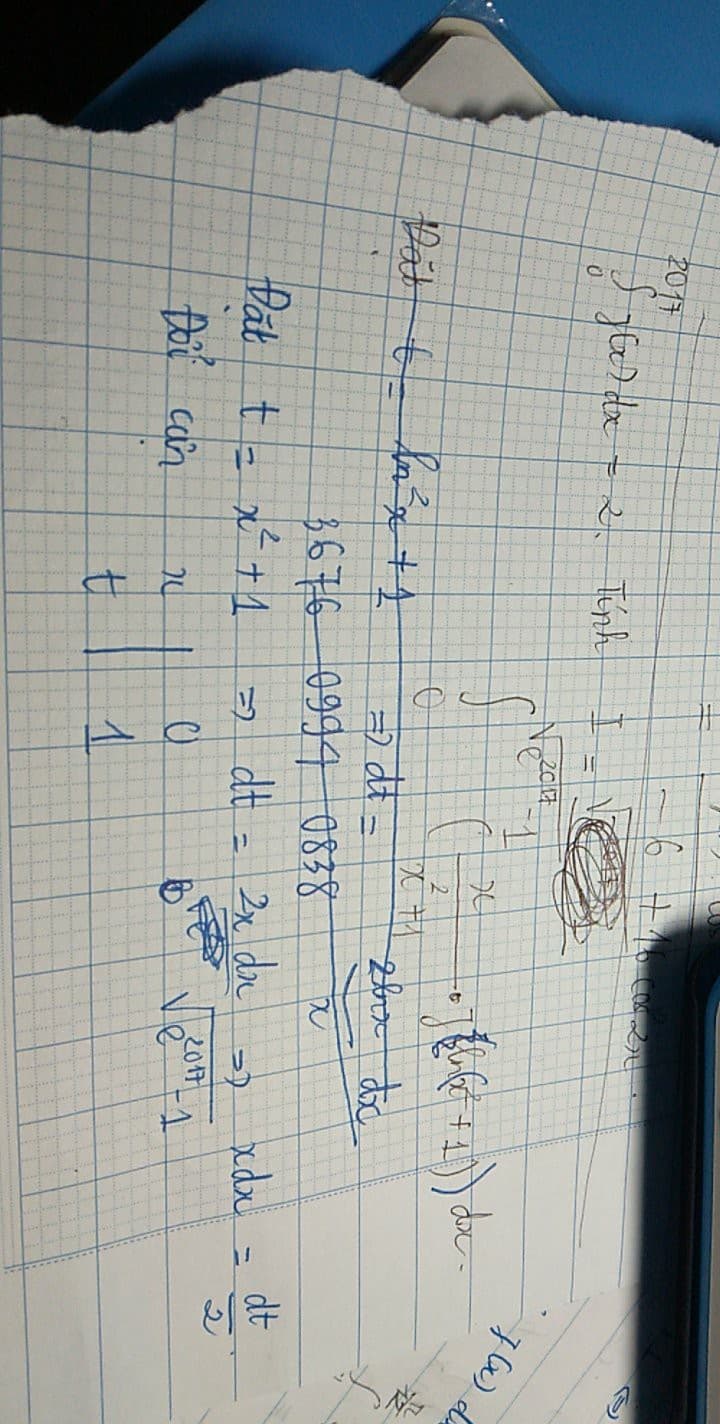 =
- 6 + 16 cos 2x.
∫₀²⁰¹⁷ f(x) dx = 2. Tính I =
∫₀^(√(e²⁰¹⁷ - 1)) (x/(x² + 1) · f(ln(x² + 1)) dx.
Đặt t = ln²x + 1 => dt = 2lnx/x dx
3676 0991 0838
Đặt t = x² + 1 => dt = 2x dx => xdx = dt/2.
Đổi cận x | 0 √(e²⁰¹⁷ - 1)
t | 1